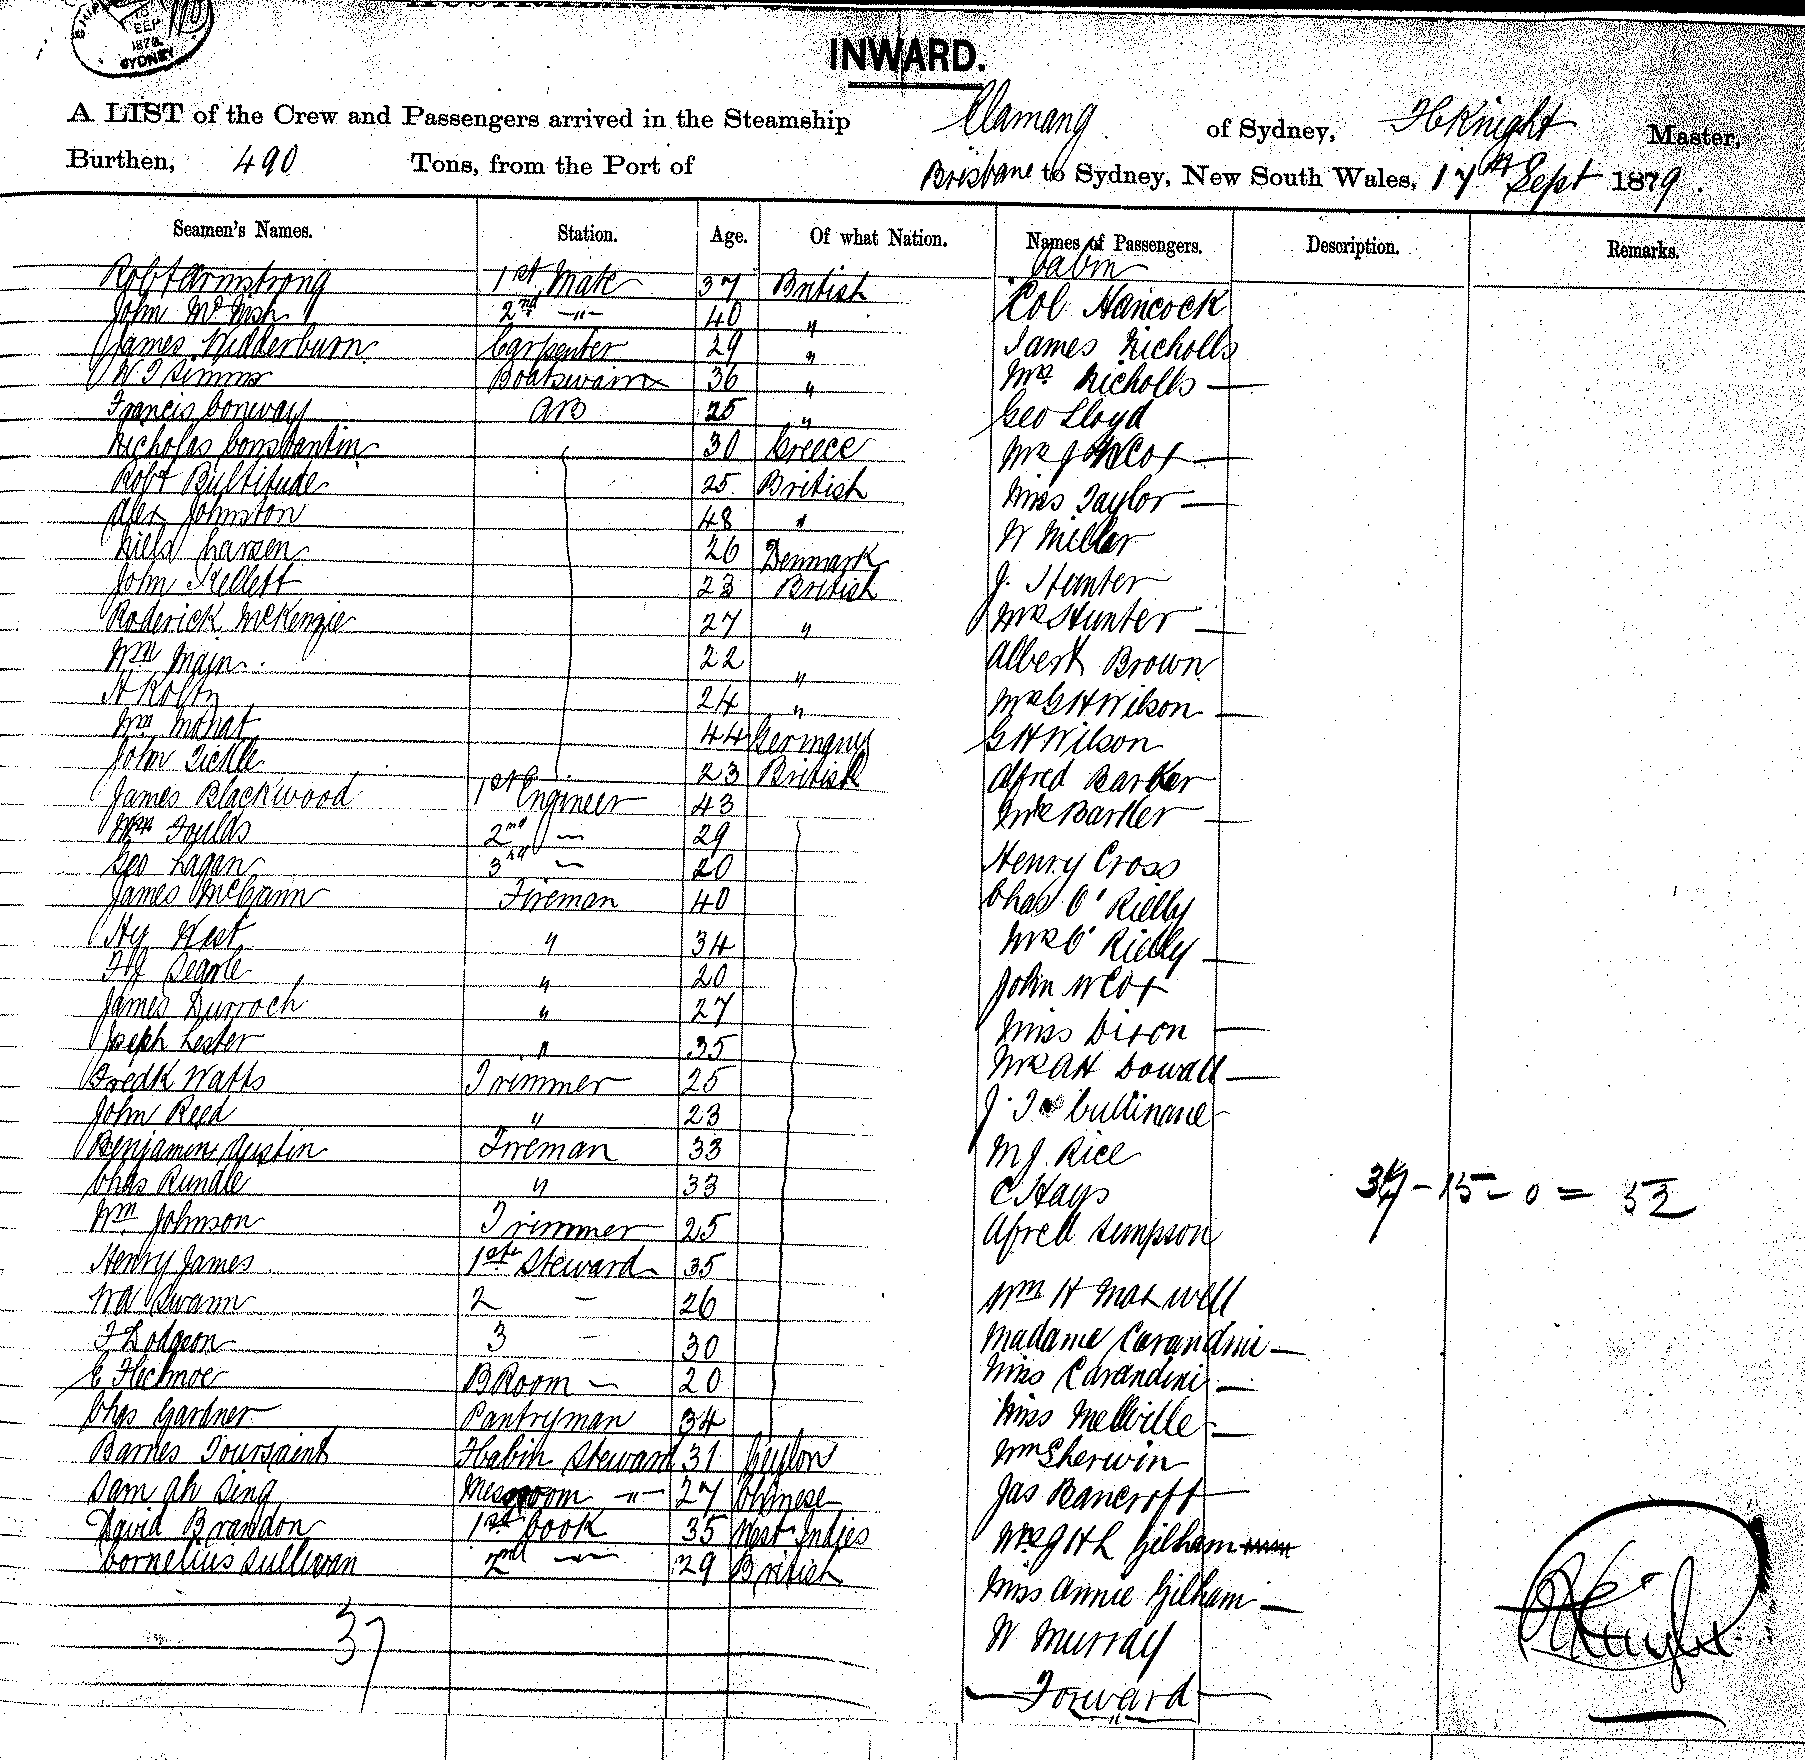 SEP
1879
SYDNEY
INWARD.
A LIST of the Crew and Passengers arrived in the Steamship Elamang of Sydney, H Knight Master,
Burthen, 490 Tons, from the Port of Brisbane to Sydney, New South Wales, 17th Sept 1879.
Seamen's Names. Station. Age. Of what Nation. Names of Passengers. Description. Remarks.
Cabin
Robt Armstrong 1st Mate 37 British Col Hancock
John McNish 2nd " 40 " James Nicholls
James Widderburn Carpenter 29 " Mrs Nicholls —
W J Simms Boatswain 36 " Geo Lloyd
Francis Conway AB 25 " Mrs J W Cox —
Nicholas Constantin 30 Greece Miss Taylor —
Robt Bultitude 25 British W Miller
Alex Johnston 48 " J. Hunter
Niels Larsen 26 Denmark Mrs Hunter —
John Kellett 23 British Albert Brown
Roderick McKenzie 27 " Mrs G H Wilson —
Wm Main 22 " G H Wilson
24 " Alfred Barker
Wm 44 Germany Mrs Barker —
John Tickle 23 British Henry Cross
James Blackwood 1st Engineer 43 Chas O'Rielly
Wm Foulds 2nd — 29 Mrs O'Rielly —
Geo Lagan 3rd — 20 John W Cox
James McGann Fireman 40 Miss Dixon —
Hy West " 34 Mrs A H Dowall —
Searle " 20 J. J Cullinane
James Durroch " 27 M J. Rice
Joseph Lester " 35 C Hays
Fredk Watts Trimmer 25 Afred Sempson
John Reed " 23 Wm H Maxwell
Benjamin Austin Fireman 33 Madame Carandini —
Chas Rundle " 33 Miss Carandini —
Wm Johnson Trimmer 25 Miss Melville —
Henry James 1st Steward 35 Wm Sherwin
W A Swann 2 — 26 Jas Bancroft
F Dodgson 3 — 30 Mrs J H L Gilham
E Flechnoe B Room — 20 Miss Annie Gilham —
Chas Gardner Pantryman 34 W Murray
Barnes Toursaint F Cabin Steward 31 Ceylon Forward
Sam Ah Sing Messroom " 27 Chinese
David Brandon 1st Cook 35 West Indies
Cornelius Sullivan 2nd " 29 British
37
37 - 15 - 0 = 52
Knight